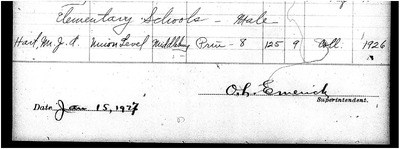 Elementary Schools - Male
Hart, M. J. A. Union Level Middleburg Prin - 8 125 9 Coll. 1926
O. L. Emerick
Superintendent.
Date Jan 15, 1927